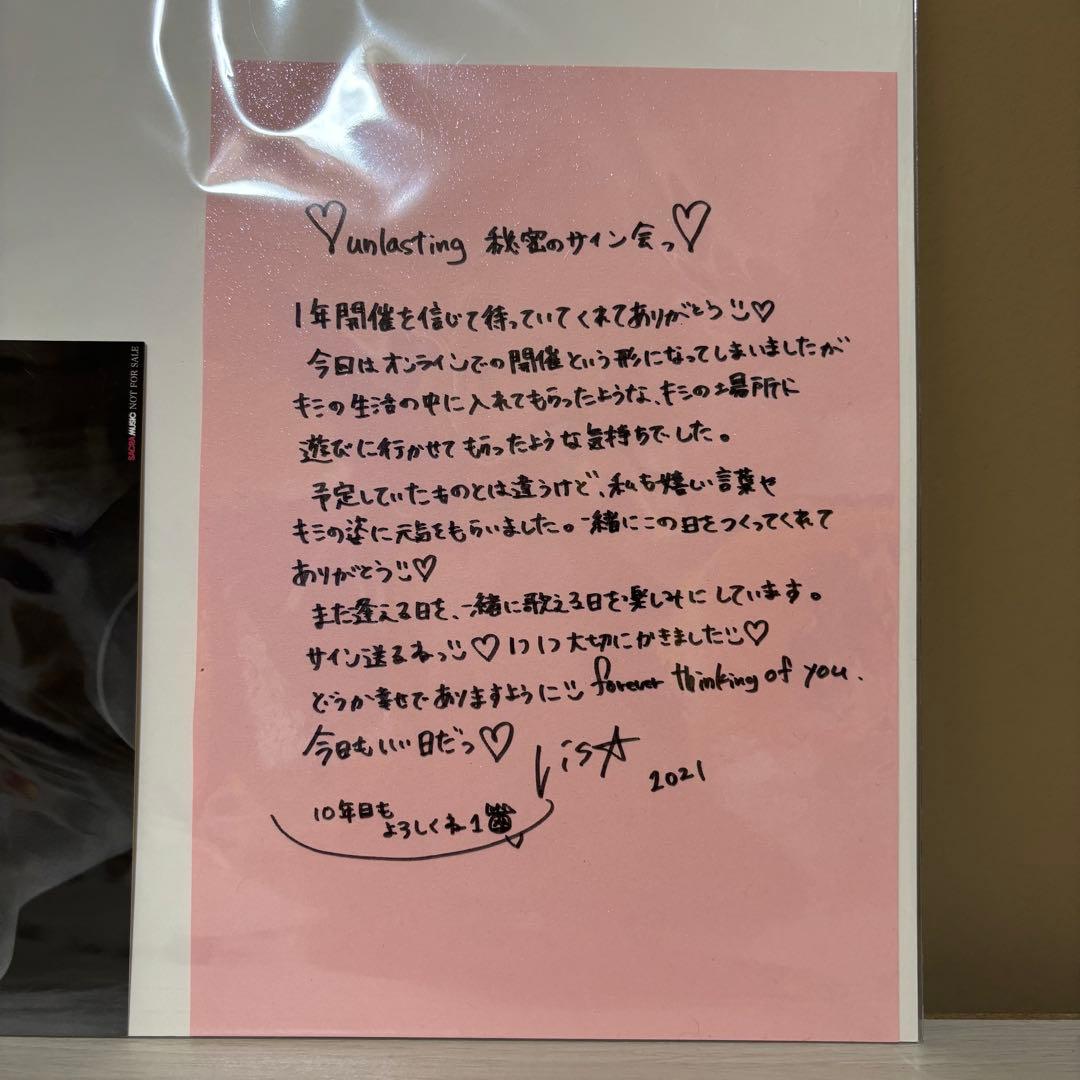 ♡unlasting 秘密のサイン会っ♡
1年開催を信じて待っていてくれてありがとう♡
今日はオンラインでの開催という形になってしまいましたが
キミの生活の中に入れてもらったような、キミの場所に
遊びに行かせてもらったような気持ちでした。
予定していたものとは違うけど、私も嬉しい言葉や
キミの姿に元気をもらいました。一緒にこの日をつくってくれて
ありがとう♡
また逢える日を、一緒に歌える日を楽しみにしています。
サイン送るねっ♡ 1つ1つ大切にかきました♡
どうか幸せでありますように forever thinking of you.
今日もいい日だっ♡
LiS☆
2021
10年目も
よろしくね
SACRA MUSIC NOT FOR SALE